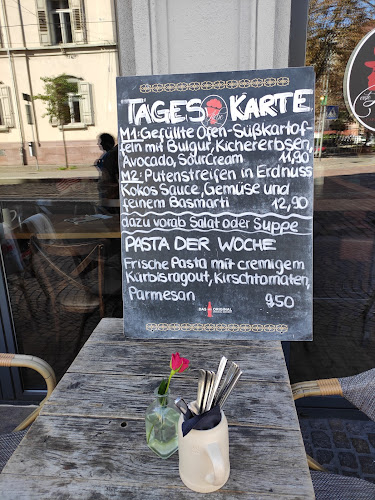 TAGES KARTE
M1: Gefüllte Ofen-Süßkartof
feln mit Bulgur, Kichererbsen,
Avocado, SourCream 11,90
M2: Putenstreifen in Erdnuss
Kokos Sauce, Gemüse und
feinem Basmati 12,90
dazu vorab Salat oder Suppe
PASTA DER WOCHE
Frische Pasta mit cremigem
Kürbisragout, Kirschtomaten,
Parmesan 9,50
DAS ORIGINAL